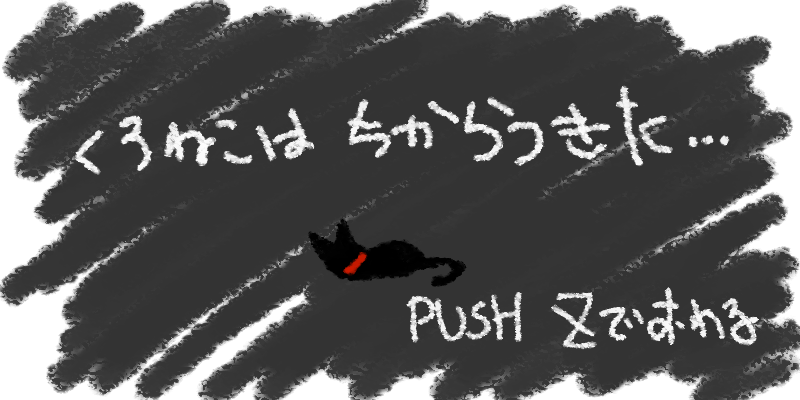 くろねこは ちからつきた...
PUSH Zでおわる